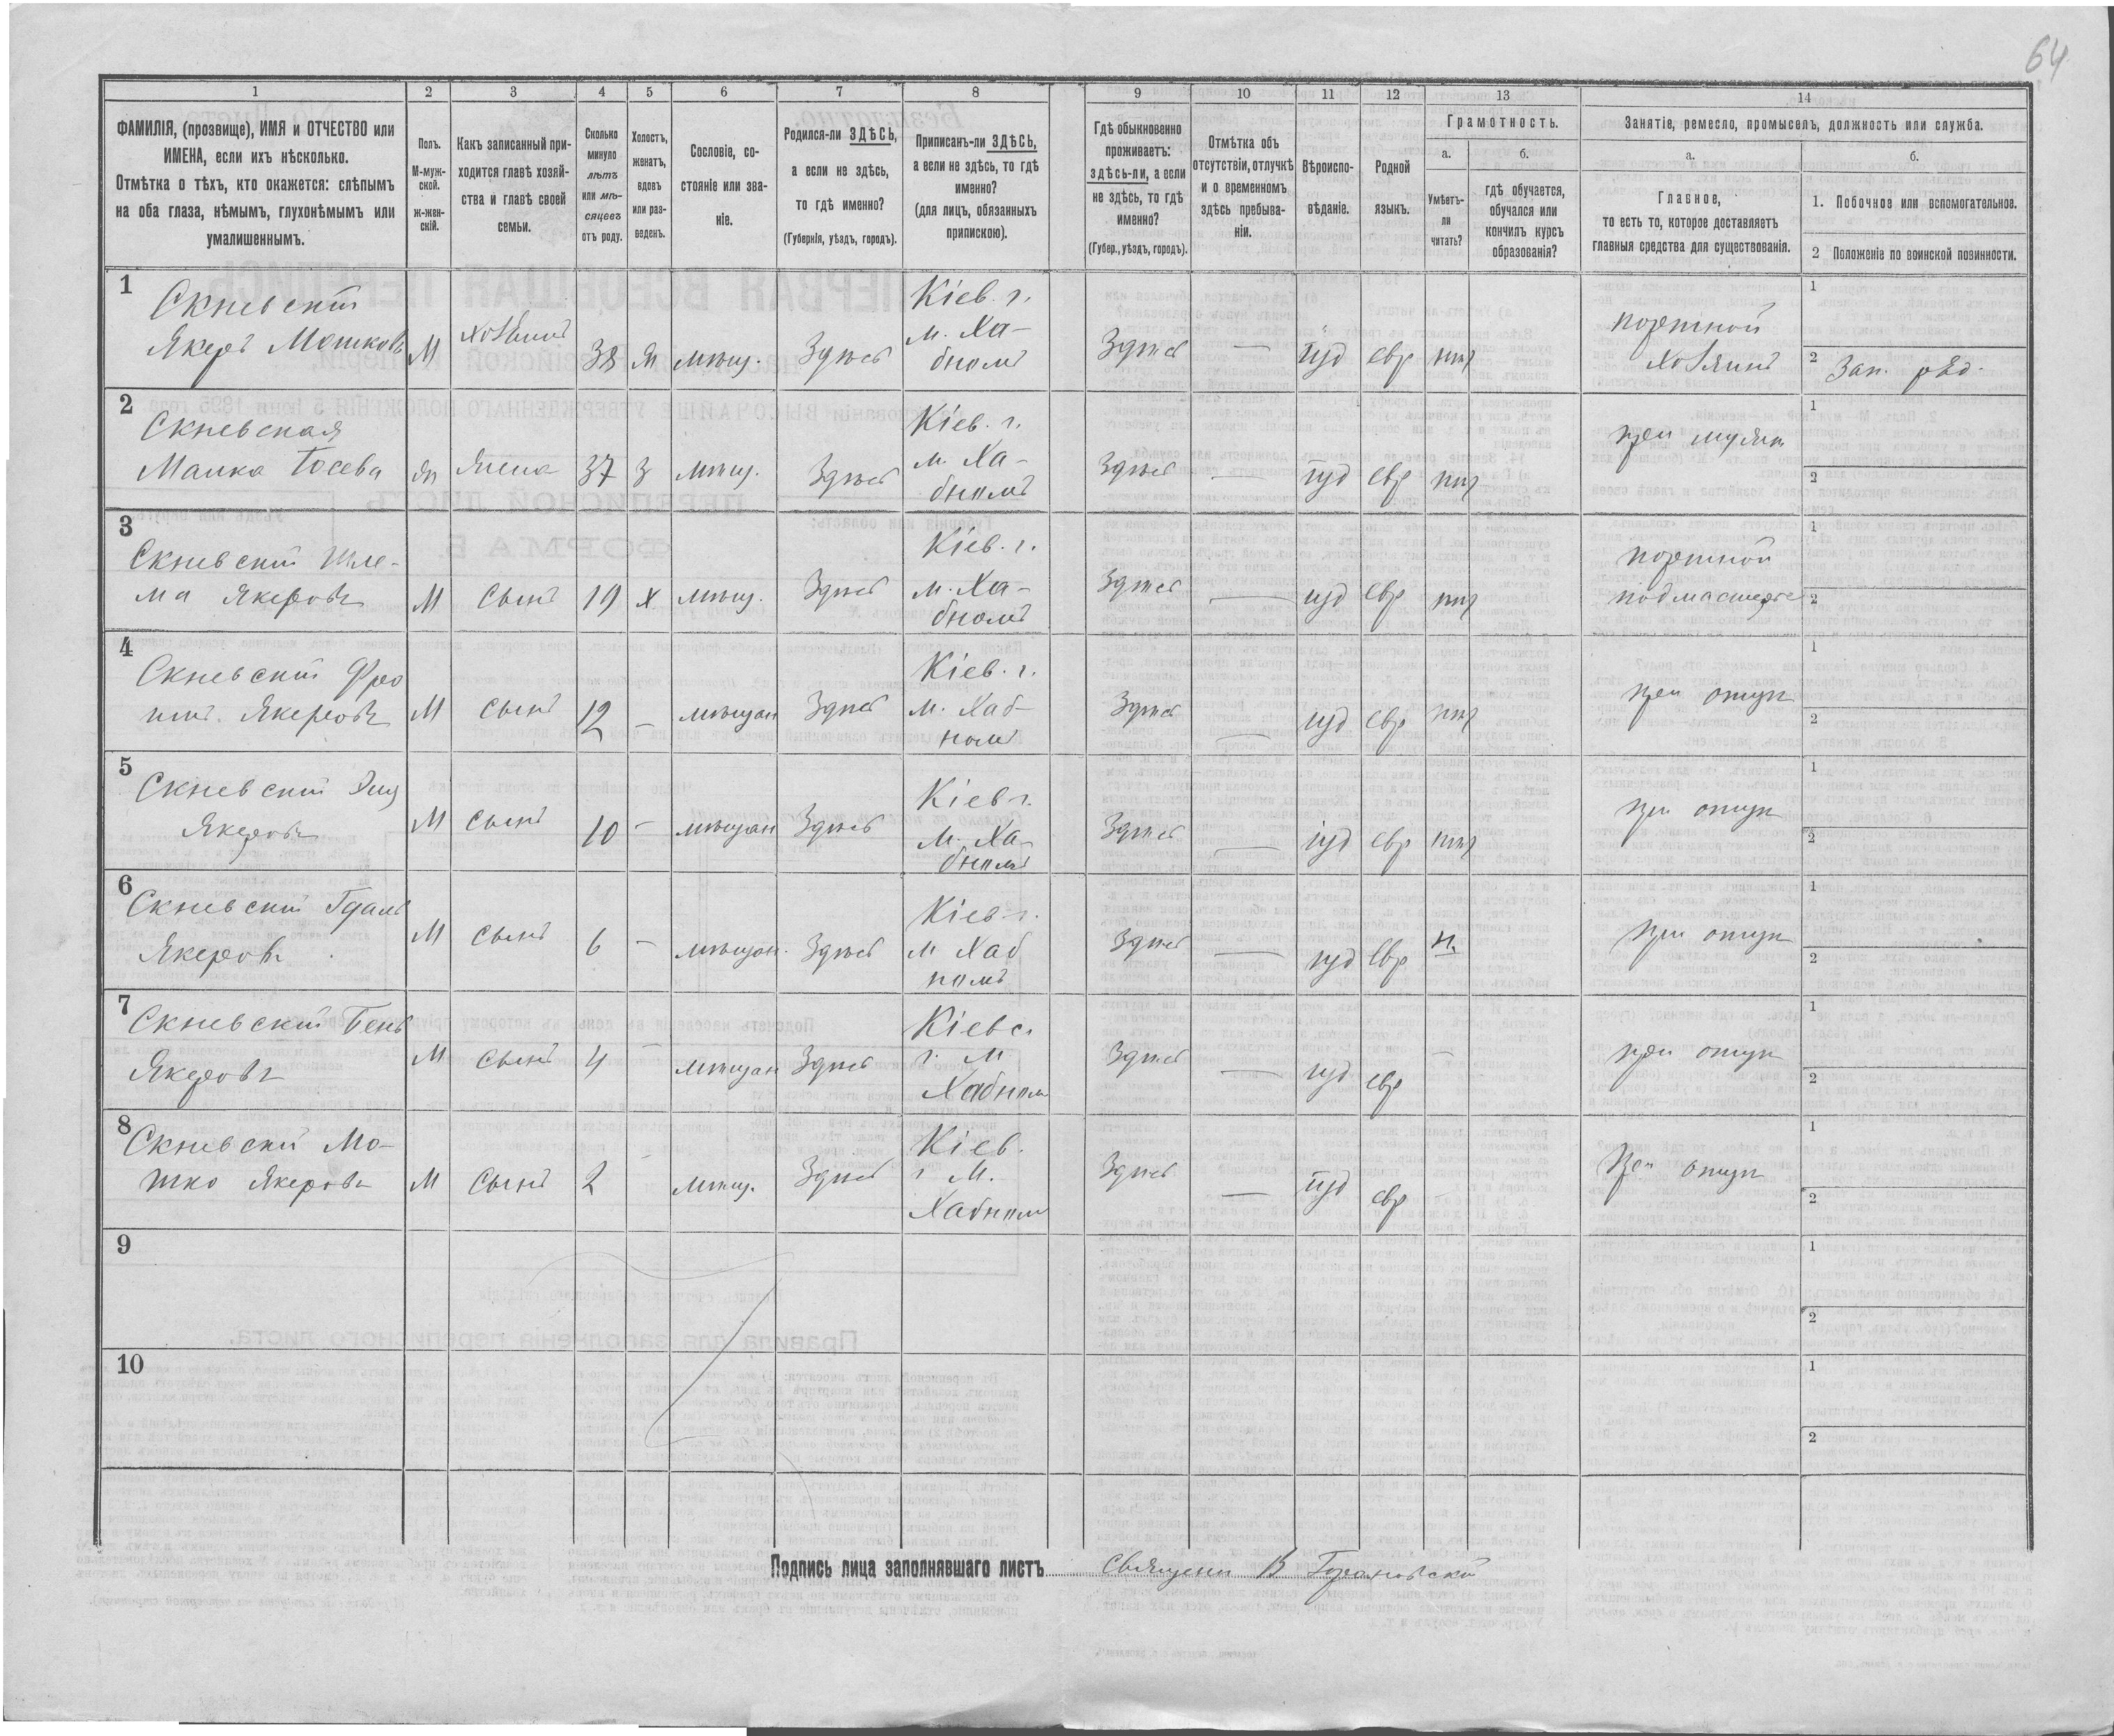 64
1 2 3 4 5 6 7 8 9 10 11 12 13 14
ФАМИЛІЯ, (прозвище), ИМЯ и ОТЧЕСТВО или
ИМЕНА, если ихъ нѣсколько.
Отмѣтка о тѣхъ, кто окажется: слѣпымъ
на оба глаза, нѣмымъ, глухонѣмымъ или
умалишеннымъ.
Полъ.
М-муж-
ской.
ж-жен-
скій.
Какъ записанный при-
ходится главѣ хозяй-
ства и главѣ своей
семьи.
Сколько
минуло
лѣтъ
или мѣ-
сяцевъ
отъ роду.
Холостъ,
женатъ,
вдовъ
или раз-
веденъ.
Сословіе, со-
стояніе или зва-
ніе.
Родился-ли ЗДѢСЬ,
а если не здѣсь,
то гдѣ именно?
(Губернія, уѣздъ, городъ).
Приписанъ-ли ЗДѢСЬ,
а если не здѣсь, то гдѣ
именно?
(для лицъ, обязанныхъ
припискою).
Гдѣ обыкновенно
проживаетъ:
здѣсь-ли, а если
не здѣсь, то гдѣ
именно?
(Губер., уѣздъ, городъ).
Отмѣтка объ
отсутствіи, отлучкѣ
и о временномъ
здѣсь пребыва-
ніи.
Вѣроиспо-
вѣданіе.
Родной
языкъ.
Грамотность.
а.
Умѣетъ-
ли
читать?
б.
гдѣ обучается,
обучался или
кончилъ курсъ
образованія?
Занятіе, ремесло, промыселъ, должность или служба.
а.
Главное,
то есть то, которое доставляетъ
главныя средства для существованія.
б.
1. Побочное или вспомогательное.
2 Положеніе по воинской повинности.
1
Скневскій
Якеръ Мошковъ М 38 мѣщ. Здѣсь
Кіев. г.
м. Ха-
бномъ
Здѣсь — іуд евр
портной
Хозяинъ
1
2 Зап. ряд.
2
Скневская
Малка Іосева жена 37 З мѣщ. Здѣсь
Кіев. г.
м. Ха-
бномъ
Здѣсь — іуд евр
при мужѣ
1
2
3
Скневскій Шле-
ма Якеровъ М Сынъ 19 х мѣщ. Здѣсь
Кіев. г.
м. Ха-
бномъ
Здѣсь — іуд евр
портной
подмастерье
1
2
4
Скневскій
Якеровъ М Сынъ 12 — мѣщан Здѣсь
Кіев. г.
м. Хаб-
номъ
Здѣсь — іуд евр
при отцѣ
1
2
5
Скневскій
Якеровъ М Сынъ 10 — мѣщан Здѣсь
Кіев г.
м. Ха-
бномъ
Здѣсь — іуд евр
при отцѣ
1
2
6
Скневскій Гдаль
Якеровъ М Сынъ 6 — мѣщан. Здѣсь
Кіев г.
м Хаб
номъ
Здѣсь — іуд евр н.
при отцѣ
1
2
7
Скневскій Бень
Якеровъ М Сынъ 4 — мѣщан Здѣсь
Кіевс.
г. м
Хабном
Здѣсь — іуд евр —
при отцѣ
1
2
8
Скневскій Мо-
шко Якеровъ М Сынъ 2 - мѣщ. Здѣсь
Кіев.
г М.
Хабном
Здѣсь — іуд евр -
При отцѣ
1
2
9
1
2
10
1
2
Подпись лица заполнявшаго листъ Священ В